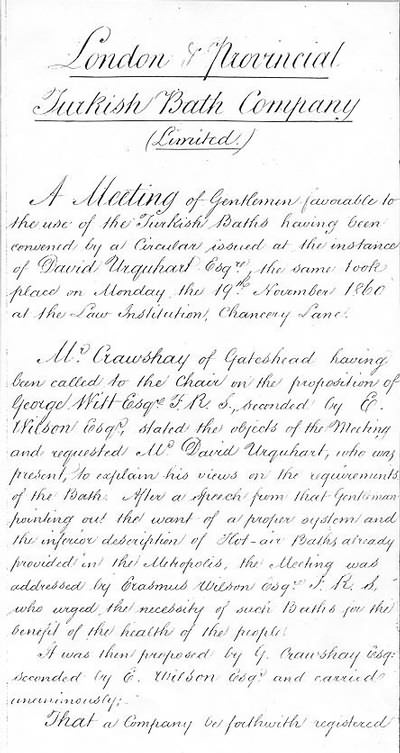 London & Provincial
Turkish Bath Company
(Limited.)
A Meeting of Gentlemen favorable to
the use of the Turkish Baths having been
convened by a Circular issued at the instance
of David Urquhart Esqre, the same took
place on Monday the 19th November 1860
at the Law Institution, Chancery Lane.
Mr Crawshay of Gateshead having
been called to the Chair on the proposition of
George Witt Esqre F. R. S., seconded by E.
Wilson Esqre, stated the objects of the Meeting
and requested Mr David Urquhart, who was
present, to explain his views on the requirements
of the Bath. After a speech from that Gentleman
pointing out the want of a proper system and
the inferior description of Hot-air Baths already
provided in the Metropolis, the Meeting was
addressed by Erasmus Wilson Esqre F. R. S,
who urged the necessity of such Baths for the
benefit of the health of the people.
It was then proposed by G. Crawshay Esq:
seconded by E. Wilson Esqre and carried
unanimously:-
That a Company be forthwith registered